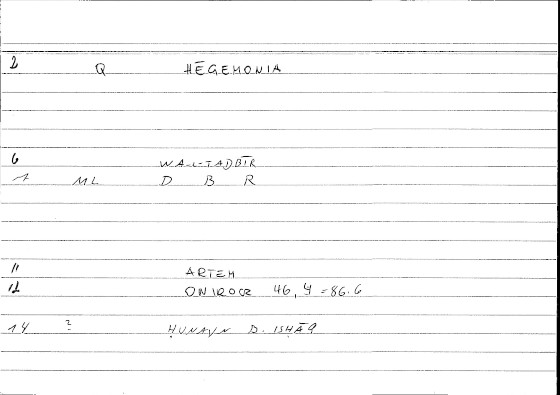 2 Q HĒGEMONIA
6 WA-L-TADBĪR
1 ML D B R
11 ARTEM
12 ONIROCR 46, 4 = 86.6
14 ? ḤUNAYN B. ISḤĀQ